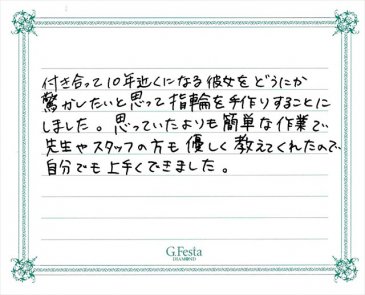 付き合って10年近くになる彼女をどうにか
驚かしたいと思って指輪を手作りすることに
しました。思っていたよりも簡単な作業で
先生やスタッフの方も優しく教えてくれたので、
自分でも上手くできました。
G.Festa
DIAMOND